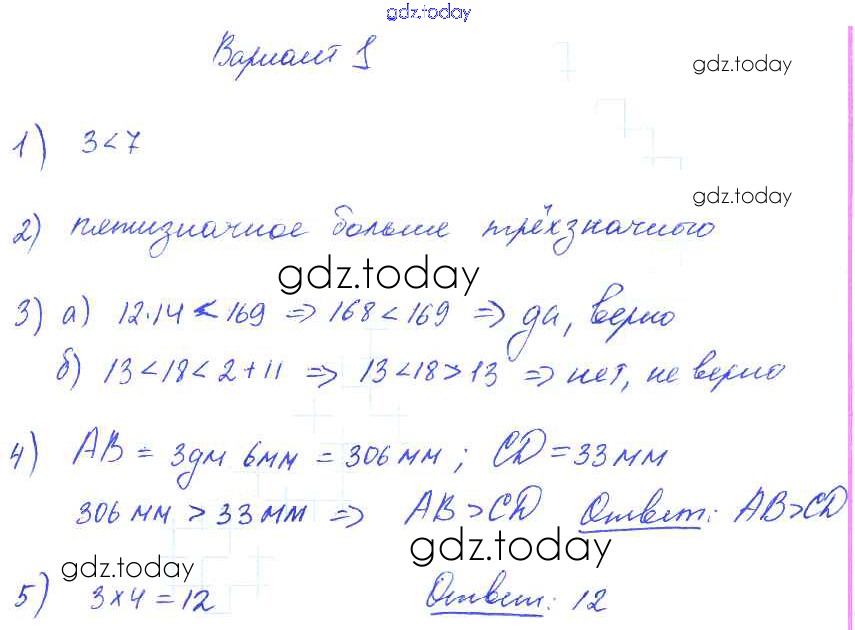 gdz.today
Вариант 1
gdz.today
1) 3<7
gdz.today
2) пятизначное больше трёхзначного
gdz.today
3) а) 12·14<169 => 168<169 => да, верно
б) 13<18<2+11 => 13<18>13 => нет, не верно
4) AB = 3дм 6мм = 306 мм ; CD = 33 мм
306 мм > 33 мм => AB>CD Ответ: AB>CD
gdz.today
gdz.today
5) 3×4=12 Ответ: 12